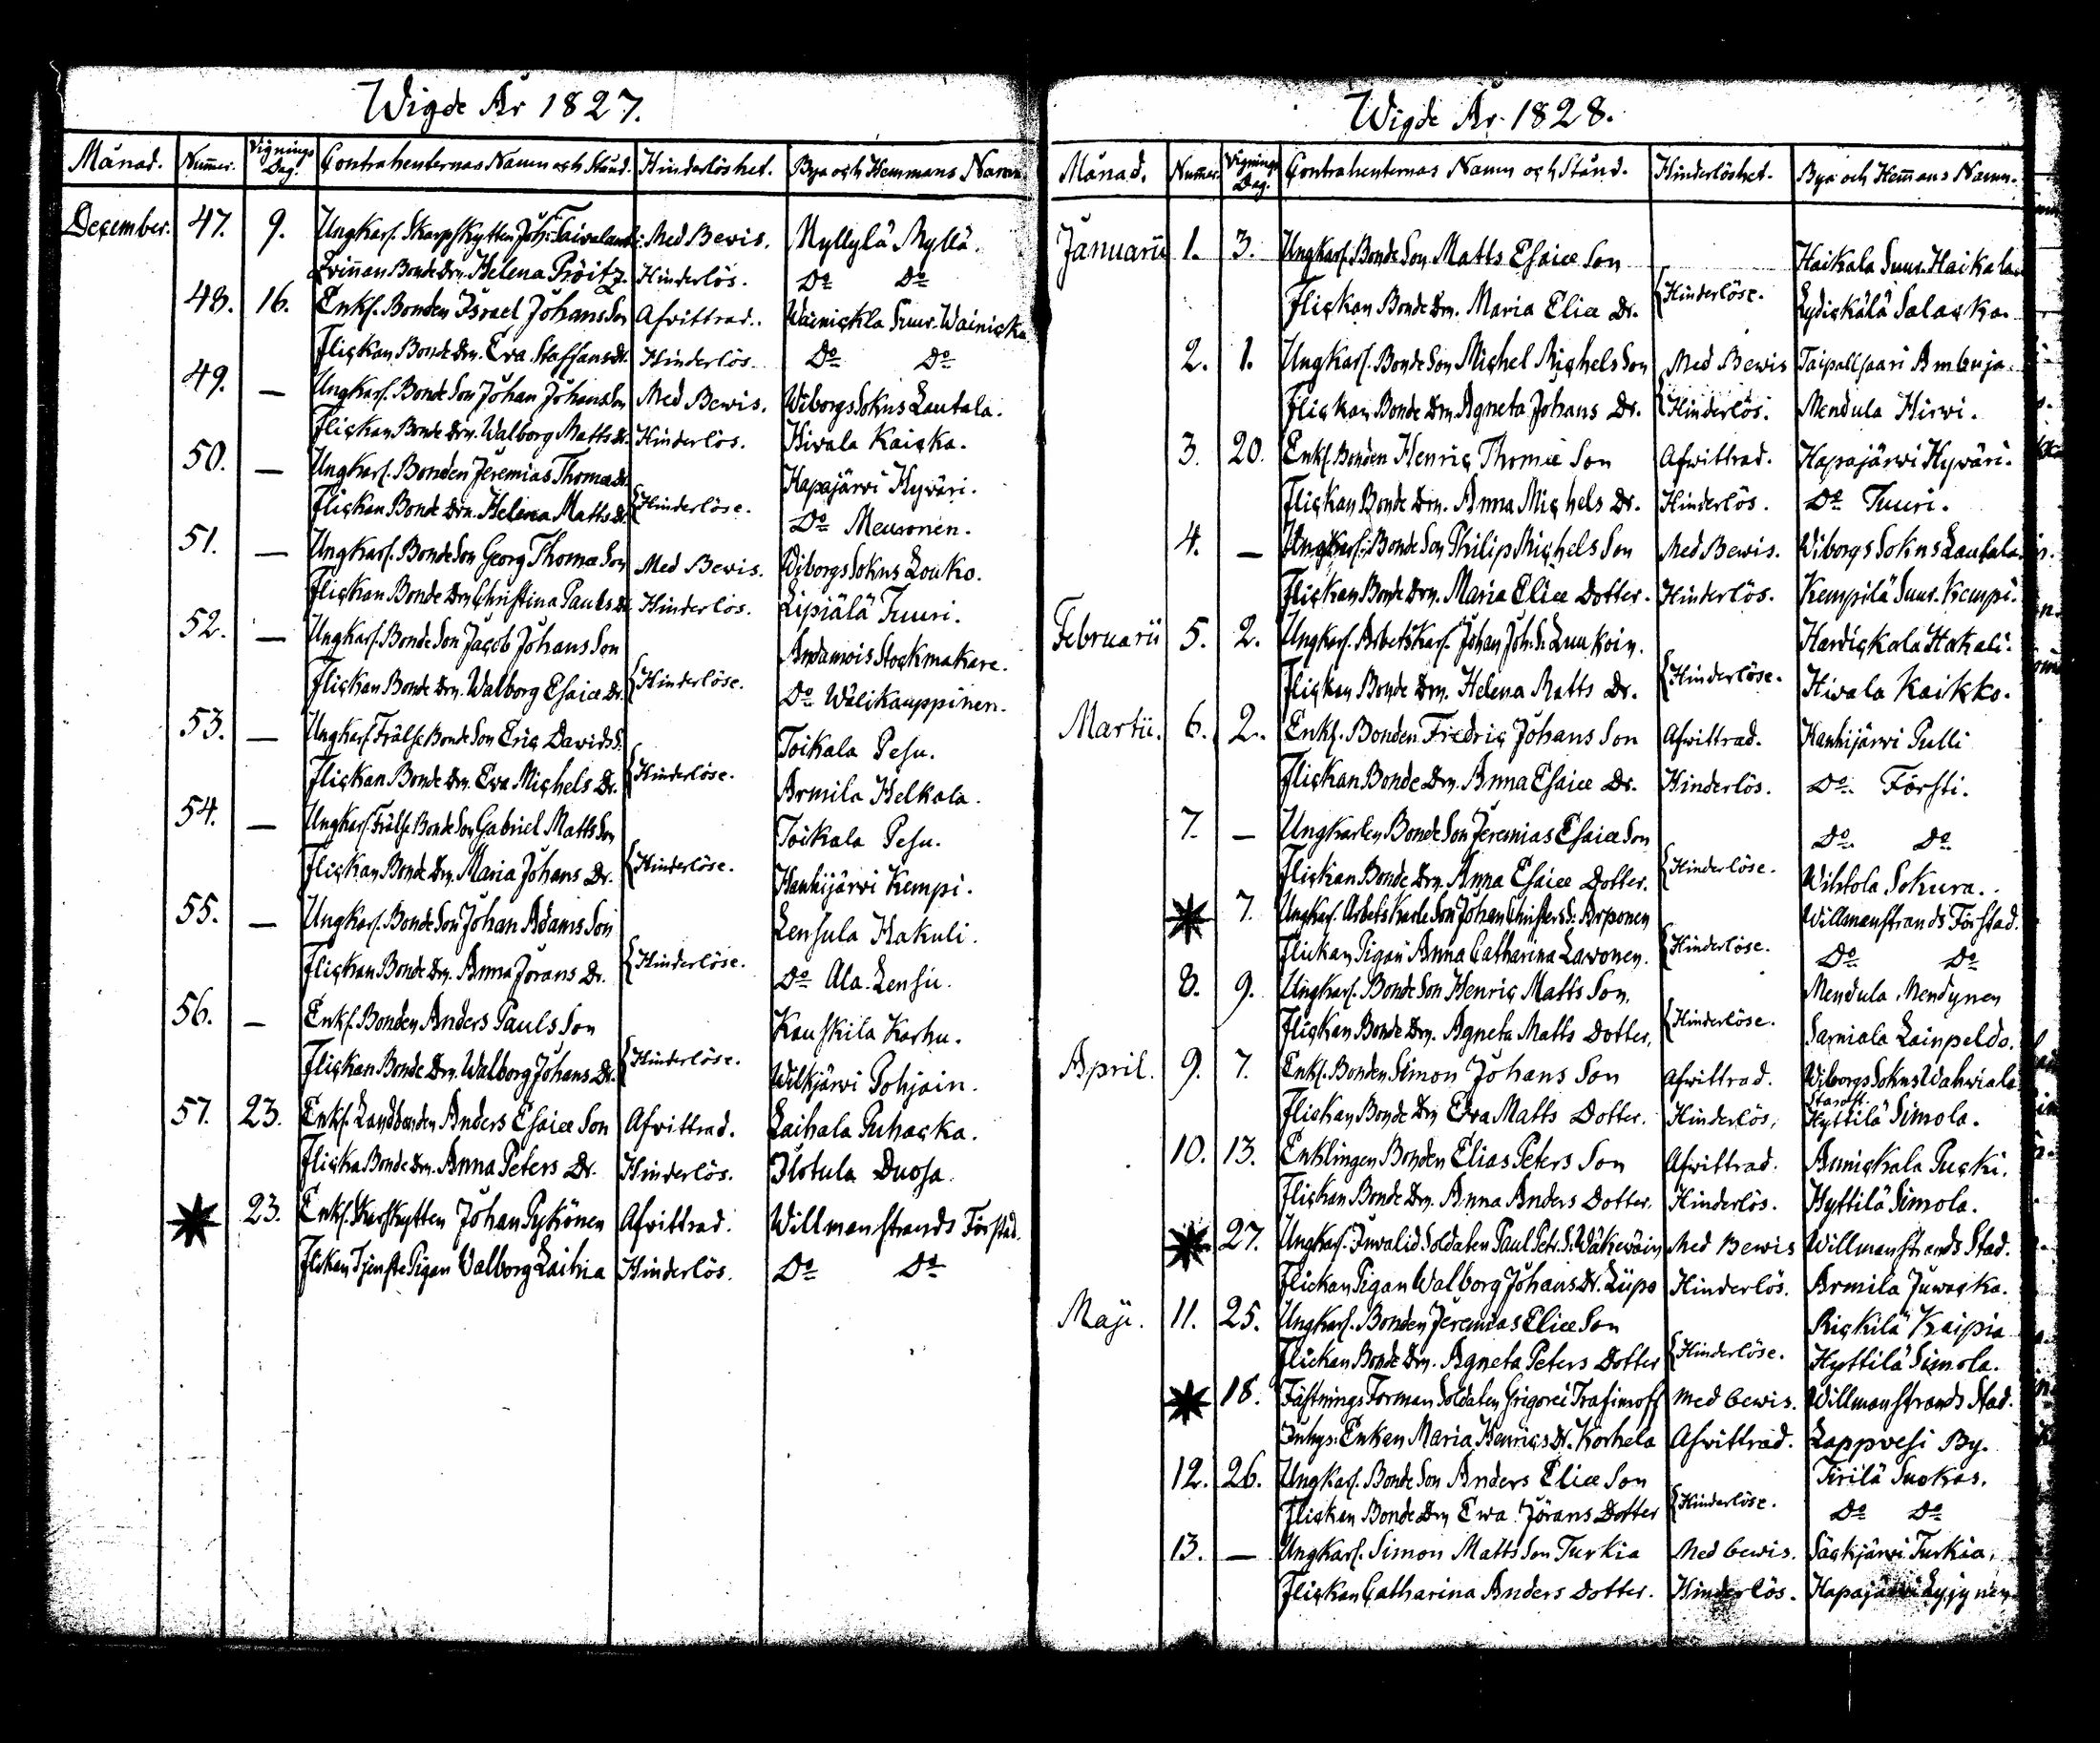 Wigde År 1827.
Månad. Num̄er. Vignings Dag. Contrahenternas Namn och Stånd. Hinderlöshet. Bya och Hemmans Namn.
December. 47. 9. Ungkarl. Skarpskytten Joh: Taivaland: Med Bevis. Myllylä Myllä.
Qvinnan Bonde Drn. Helena Pröitz. Hinderlös. Do Do
48. 16. Enkl. Bonden Israel Johans Son Afvittrad. Wainickla Suur-Wainicka
Flickan Bonde Drn. Eva Staffans Dr. Hinderlös. Do Do
49. — Ungkarl. Bonde Son Johan Johans Son Med Bewis. Wiborgs Sokns Lautala.
Flickan Bonde Drn. Walborg Matts Dr. Hinderlös. Hivala Kaicka.
50. — Ungkarl. Bonden Jeremias Thomæ Hapajärvi Hyväri.
Flickan Bonde Drn. Helena Matts Dr. {Hinderlöse. Do Meuronen.
51. — Ungkarl. Bonde Son Georg Thomæ Son Med Bevis. Wiborgs Sokns Louko.
Flickan Bonde Drn Christina Pauls Dr. Hinderlös. Lipiälä Tuuri.
52. — Ungkarl. Bonde Son Jacob Johans Son Stockmakare.
Flickan Bonde Drn. Walborg Esaiæ Dr. {Hinderlöse. Do Wälikauppinen.
53. — Ungkarl Frälse Bonde Son Eric Davids S. Toikala Pesu.
Flickan Bonde Drn. Eva Michels Dr. {Hinderlöse. Armila Helkala.
54. — Ungkarl. Frälse Bonde Son Gabriel Matts Son Toikala Pesu.
Flickan Bonde Drn. Maria Johans Dr. {Hinderlöse. Hanhijärvi Kempi.
55. — Ungkarl. Bonde Son Johan Adams Son Lensula Hakuli.
Flickan Bonde Drn. Anna Jörans Dr. {Hinderlöse. Do Ala-Lensu.
56. — Enkl. Bonden Anders Pauls Son Kauskila Karhu.
Flickan Bonde Drn. Walborg Johans Dr. {Hinderlöse. Wilkjärvi Pohjain.
57. 23. Enkl. Landbonden Anders Esaiæ Son Afvittrad. Laihala Puhacka.
Flicka Bonde Drn. Anna Peters Dr. Hinderlös. Ilotula Duosa.
23. Enkl. Skarpskytten Johan Pykönen Afvittrad. Willmanstrands Förstad.
Flickan Tjenste Pigan Valborg Laihia Hinderlös. Do Do
Wigde År 1828.
Månad. Num̄er. Vignings Dag. Contrahenternas Namn och Stånd. Hinderlöshet. Bya och Hem̄ans Namn.
Januarii 1. 3. Ungkarl. Bonde Son Matts Esaiæ Son Haikala Suur-Haikala
Flickan Bonde Drn. Maria Eliæ Dr. {Hinderlöse. Lydickälä Salacka.
2. 1. Ungkarl. Bonde Son Michel Michels Son Med Bewis Taipallsaari Ambuja.
Flickan Bonde Drn. Agneta Johans Dr. {Hinderlös. Mendula Hirvi.
3. 20. Enkl. Bonden Henric Thomæ Son Afvittrad. Hapajärwi Hyväri.
Flickan Bonde Drn. Anna Michels Dr. Hinderlös. Do Tuuri.
4. — Ungkarl. Bonde Son Philip Michels Son Med Bewis. Wiborgs Sokns Lautala
Flickan Bonde Drn. Maria Eliæ Dotter. Hinderlös. Kempilä Suur-Kempi.
Februarii 5. 2. Ungkarl. Arbetskarl. Johan Joh. S: Luukoin. Hardickala Hakali.
Flickan Bonde Drn. Helena Matts Dr. {Hinderlöse. Hivala Kaikko.
Martii. 6. 2. Enkl. Bonden Fredric Johans Son Afvittrad. Hanhijärvi Pulli
Flickan Bonde Drn. Anna Esaiæ Dr. Hinderlös. Do Försti.
7. — Ungkarlen Bonde Son Jeremias Esaiæ Son Do Do
Flickan Bonde Drn. Anna Esaiæ Dotter. {Hinderlöse. Wihtola Sokura.
7. Ungkarl. Arbets Karls Son Johan Christers S: Arponen Willmanstrands Förstad.
Flickan Pigan Anna Catharina Lavonen. {Hinderlöse. Do Do
8. 9. Ungkarl. Bonde Son Henric Matts Son. Mendula Mendynen
Flickan Bonde Drn. Agneta Matts Dotter. {Hinderlöse. Samiala Lainpelds.
April. 9. 7. Enkl. Bonden Simon Johans Son Afvittrad. Wiborgs Sokns Wahwiala
Flickan Bonde Drn Eva Matts Dotter. Hinderlös. Hyttilä Simola.
10. 13. Enklingen Bonden Elias Peters Son Afvittrad. Annickala Pucki.
Flickan Bonde Drn. Anna Anders Dotter. Hinderlös. Hyttilä Simola.
27. Ungkarl. Invalid Soldaten Paul Petr. S: Wäkeväin Med Bewis Willmanstrands Stad.
Flickan Pigan Walborg Johans Dr. Liipo Hinderlös. Armila Juvacka.
Maji. 11. 25. Ungkarl. Bonden Jeremias Eliæ Son Rickilä Kaipia
Flickan Bonde Drn. Agneta Peters Dotter {Hinderlöse. Hyttilä Simola.
18. Fästnings Forman Soldaten Grigorei Trafimoff Med bewis. Willmanstrands Stad.
Inhys: Enkan Maria Henrics Dr. Korhela Afvittrad. Lappvesi By.
12. 26. Ungkarl. Bonde Son Anders Eliæ Son Tirilä Suokas.
Flickan Bonde Drn Ewa Jörans Dotter {Hinderlöse. Do Do
13. — Ungkarl. Simon Matts Son Turkia Med bewis. Säckjärvi Turkia.
Flickan Catharina Anders Dotter. Hinderlös. Hapajärvi